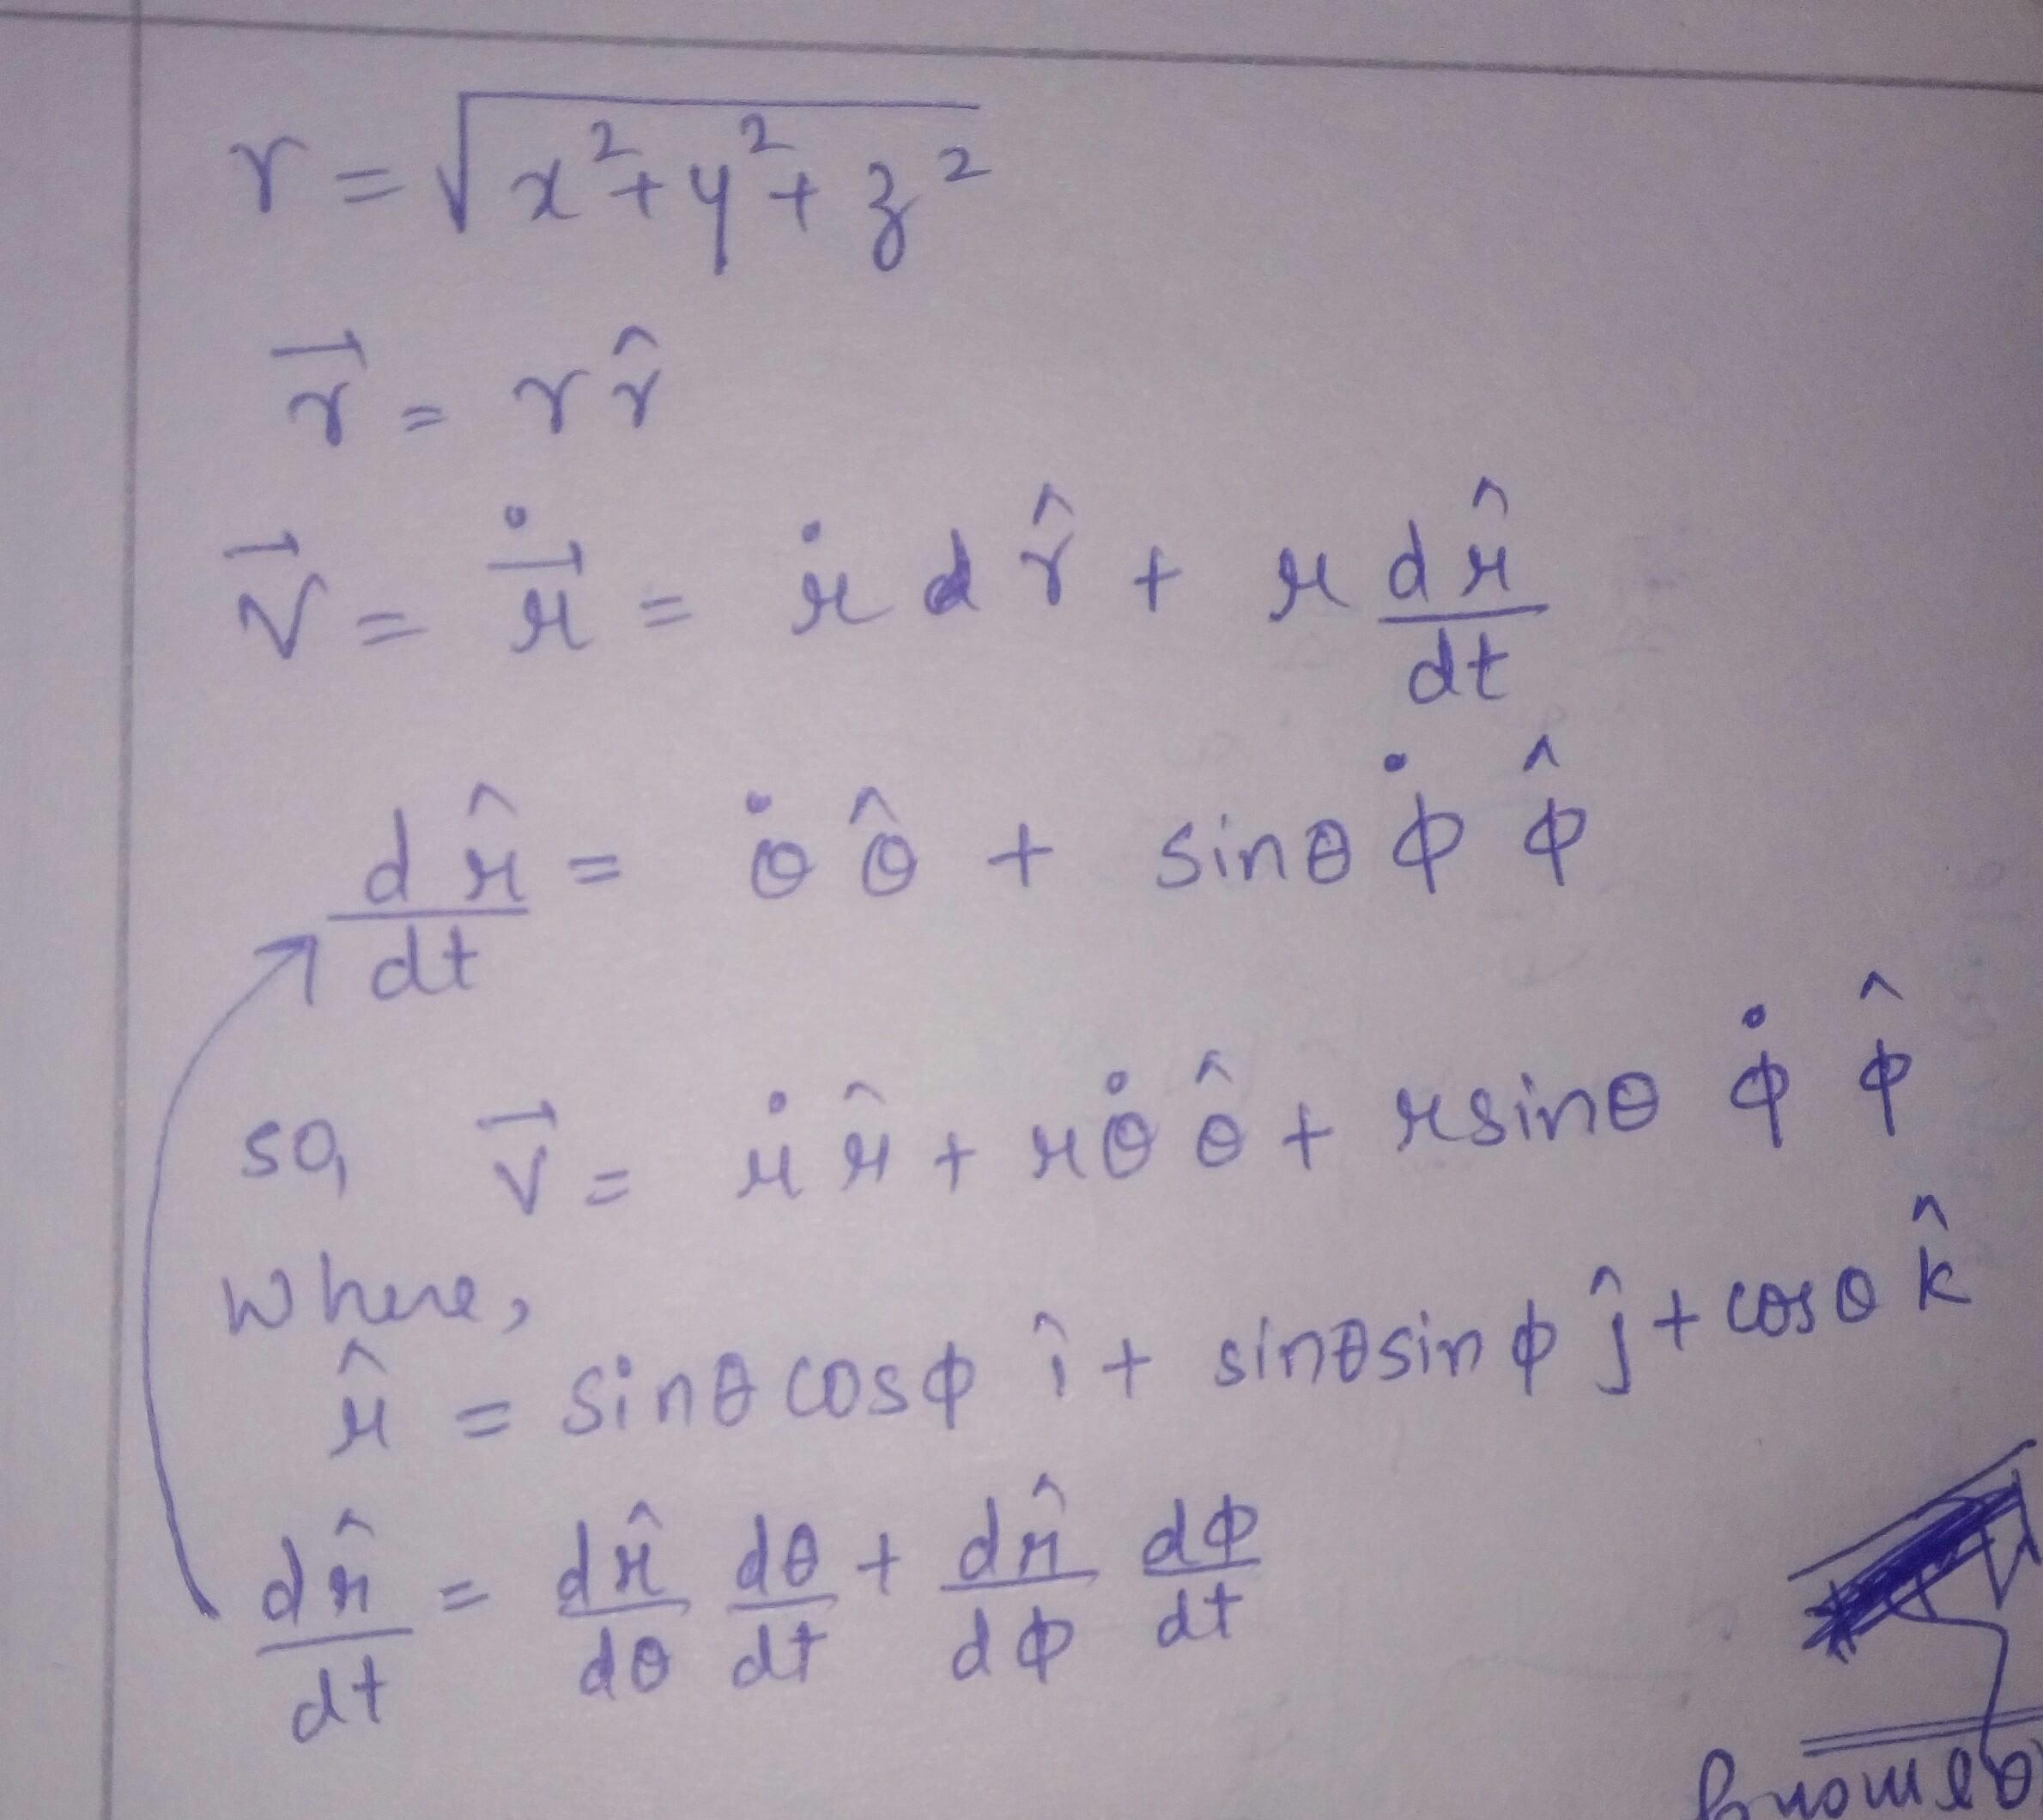 r = √(x² + y² + z²)
r⃗ = r r̂
v⃗ = ṙ⃗ = ṙ d r̂ + r dr̂/dt
dr̂/dt = θ̇ θ̂ + sinθ φ̇ φ̂
so, v⃗ = ṙ r̂ + rθ̇ θ̂ + rsinθ φ̇ φ̂
where,
r̂ = sinθ cosφ î + sinθsinφ ĵ + cosθ k̂
dr̂/dt = dr̂/dθ dθ/dt + dr̂/dφ dφ/dt